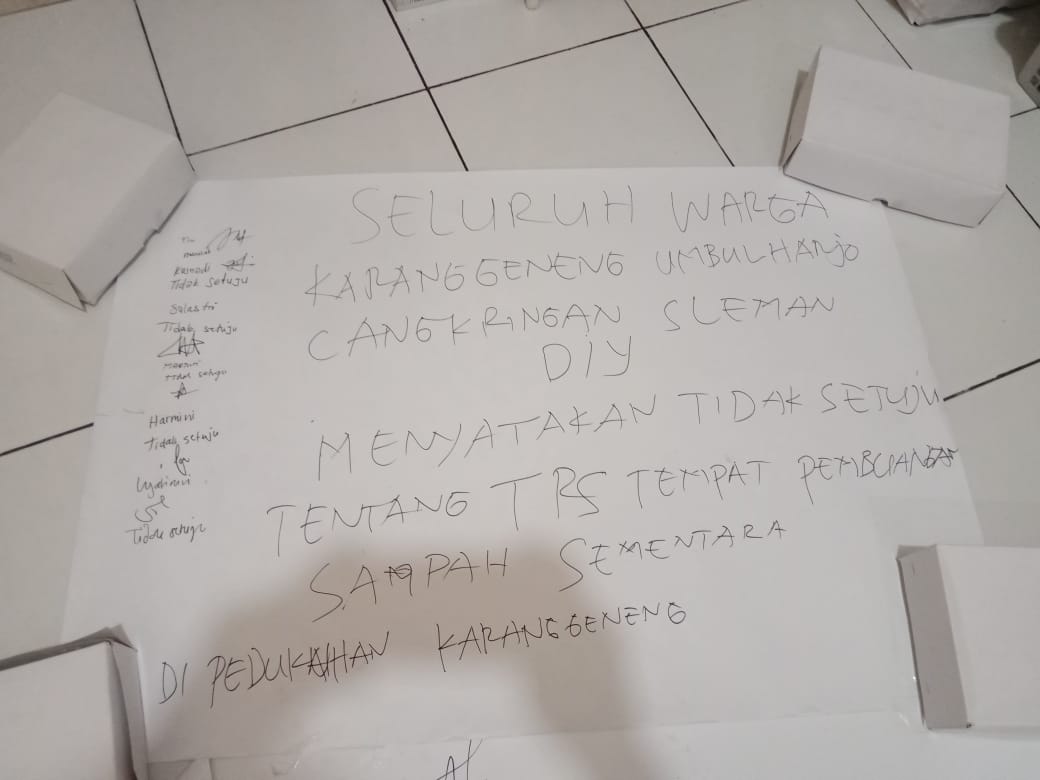 SELURUH WARGA
KARANGGENENG UMBULHARJO
CANGKRINGAN SLEMAN
DIY
MENYATAKAN TIDAK SETUJU
TENTANG TPS TEMPAT PEMBUANGAN
SAMPAH SEMENTARA
DI PEDUKUHAN KARANGGENENG
Tidak setuju
Sulastri
Tidak setuju
Tidak setuju
Harmini
Tidak setuju
Tidak setuju